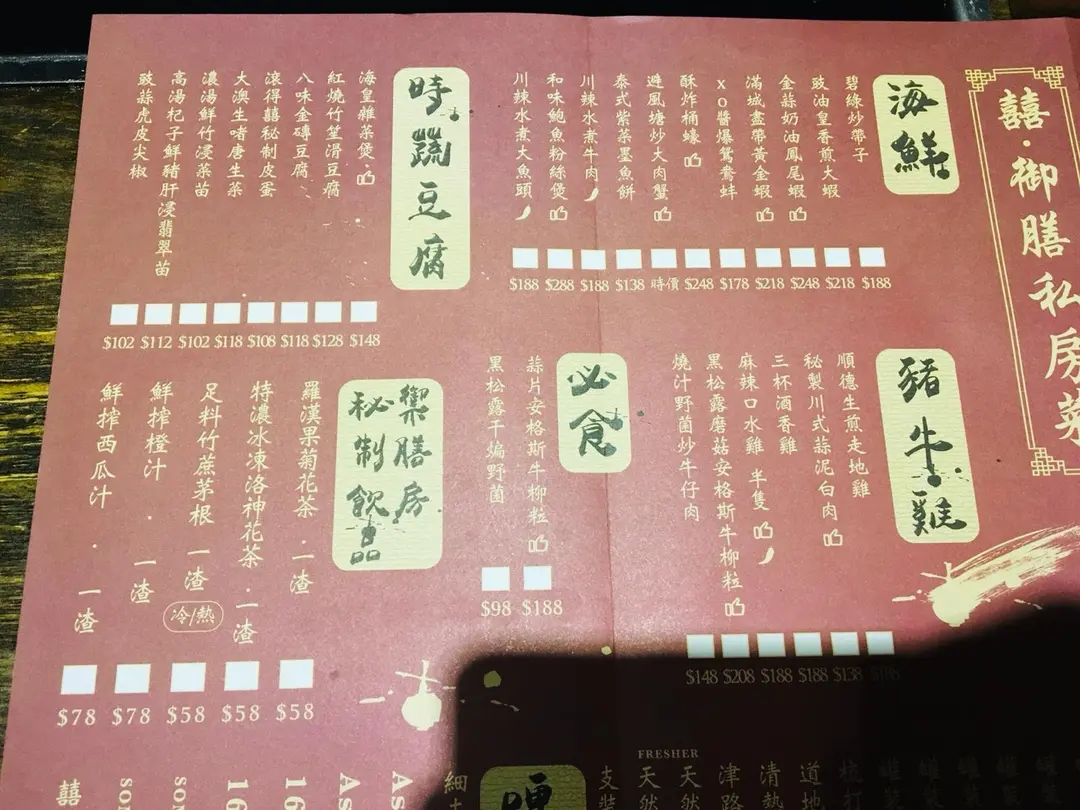 囍·御膳私房菜
海鮮
碧綠炒帶子 $188
豉油皇香煎大蝦 $218
金蒜奶油鳳尾蝦 $248
滿城盡帶黃金蝦 $218
xo醬爆鴛鴦蚌 $178
酥炸桶蠔 $248
避風塘炒大肉蟹 時價
泰式紫菜墨魚餅 $138
川辣水煮牛肉 $188
和味鮑魚粉絲煲 $288
川辣水煮大魚頭 $188
時蔬豆腐
海皇雜菜煲 $148
紅燒竹笙滑豆腐 $128
八味金磚豆腐 $118
滾得囍秘制皮蛋 $108
大澳生啫唐生菜 $118
濃湯鮮竹浸菜苗 $102
高湯杞子鮮豬肝浸翡翠苗 $112
豉蒜虎皮尖椒 $102
豬牛雞
順德生煎走地雞 $188
秘製川式蒜泥白肉 $138
三杯酒香雞 $188
麻辣口水雞 半隻 $188
黑松露磨菇安格斯牛柳粒 $208
燒汁野菌炒牛仔肉 $148
必食
蒜片安格斯牛柳粒 $188
黑松露干煸野菌 $98
禦膳房
秘制飲品
羅漢果菊花茶·一渣 $58
特濃冰凍洛神花茶·一渣 $58
足料竹蔗茅根 一渣 冷/熱 $58
鮮搾橙汁·一渣 $78
鮮搾西瓜汁·一渣 $78
FRESHER
道地
清熱
津路
天然
天然
支裝
細
As
As
16
16
som
som
囍